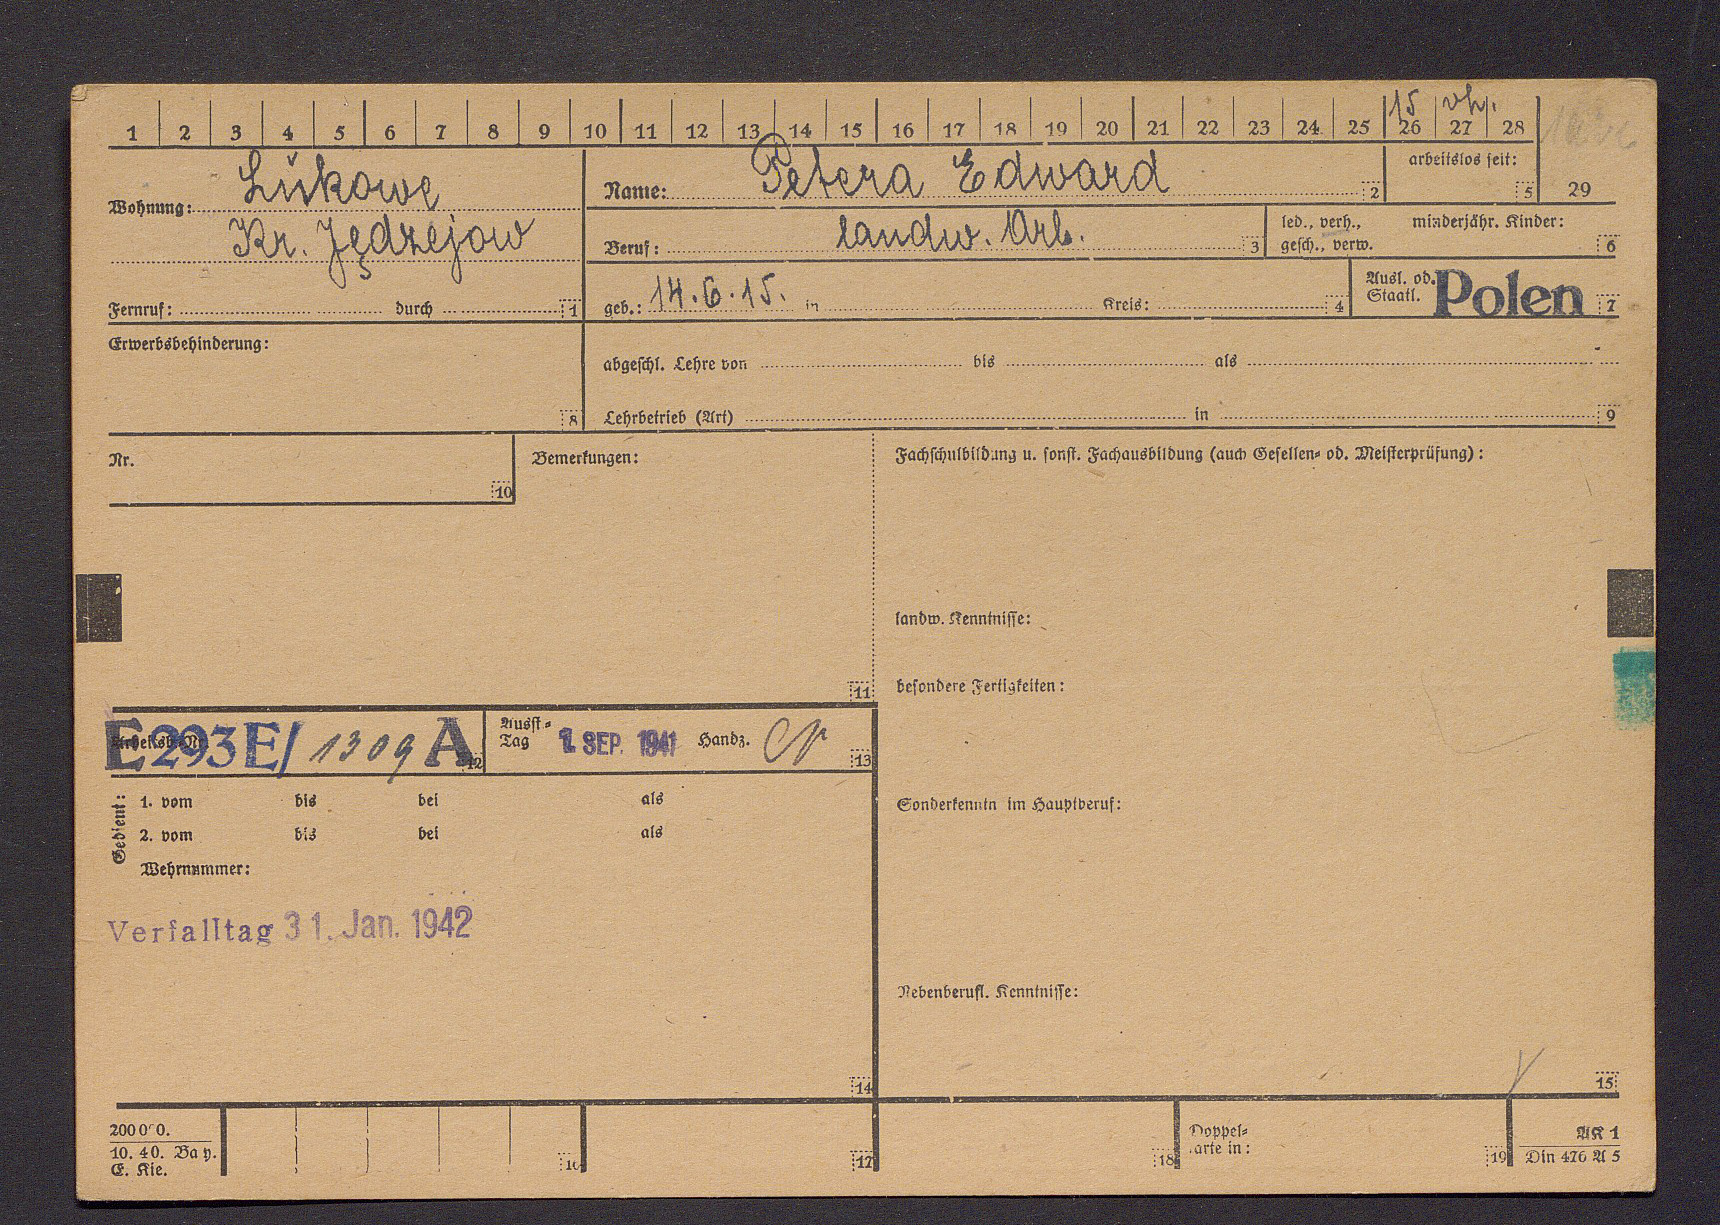 15 vh.
1 2 3 4 5 6 7 8 9 10 11 12 13 14 15 16 17 18 19 20 21 22 23 24 25 26 27 28
Wohnung: Lukowe
Kr. Jędzejow
Fernruf: durch 1
Name: Petera Edward 2
arbeitslos seit: 5
29
Beruf: landw. Arb. 3
led., verh., minderjähr. Kinder:
gesch., verw. 6
geb.: 14.6.15. in Kreis: 4
Ausl. od.
Staatl. Polen 7
Erwerbsbehinderung:
8
abgeschl. Lehre von bis als
Lehrbetrieb (Art) in 9
Nr.
10
Bemerkungen:
11
Fachschulbildung u. sonst. Fachausbildung (auch Gesellen- od. Meisterprüfung):
landw. Kenntnisse:
besondere Fertigkeiten:
Arbeitsb. Nr. E 293 E/ 1309 A 12
Ausst-
Tag 1. SEP. 1941 Handz. 13
Gedient:
1. vom bis bei als
2. vom bis bei als
Wehrnummer:
Verfalltag 31. Jan. 1942
14
Sonderkenntn im Hauptberuf:
Nebenberufl. Kenntnisse:
15
200000.
10. 40. Bay.
E. Kie.
16
17
18
Doppel-
karte in:
19
AK 1
Din 476 A 5